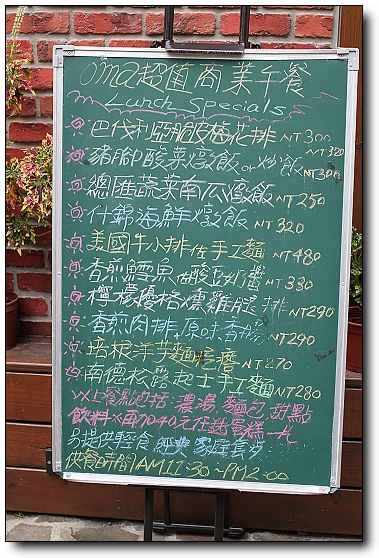 oma超值商業午餐
Lunch Specials
巴伐利亞脆皮梅花排 NT300
豬腳酸菜燉飯or炒飯 NT320 NT300
總匯蔬菜南瓜燉飯 NT250
什錦海鮮燉飯 NT320
美國牛小排佐手工麵 NT480
香煎鱈魚佐酸豆奶醬 NT330
檸檬優格燻雞腿排 NT290
香煎肉排原味香腸 NT290
培根洋芋麵疙瘩 NT270
南德松露起士手工麵 NT280
※以上餐點包括:濃湯.麵包.甜點
飲料※再加40元任選蛋糕一片
另提供輕食 經典 家庭套餐
供餐時間AM11:30~PM2:00